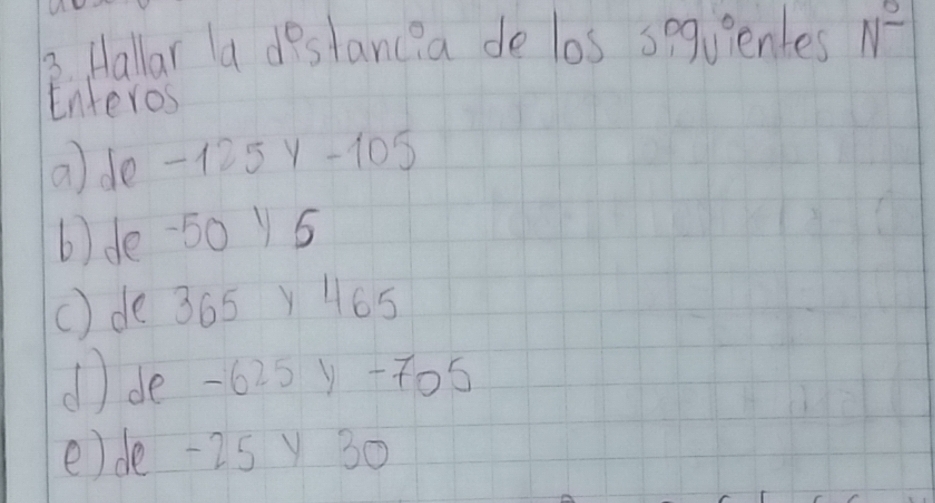 3. Hallar la distancia de los siguientes Nº
Enteros
a) de -125 y -105
b) de -50 y 5
c) de 365 y 465
d) de -625 y -705
e) de -25 y 30